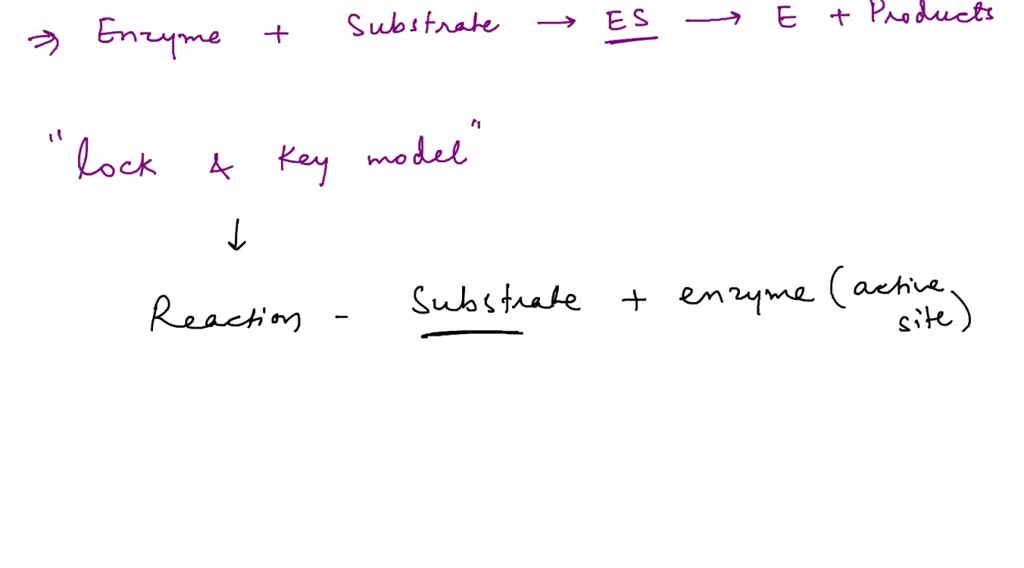 ⇒ Enzyme + Substrate → ES → E + Products
"lock & Key model"
↓
Reaction - Substrate + enzyme (active site)